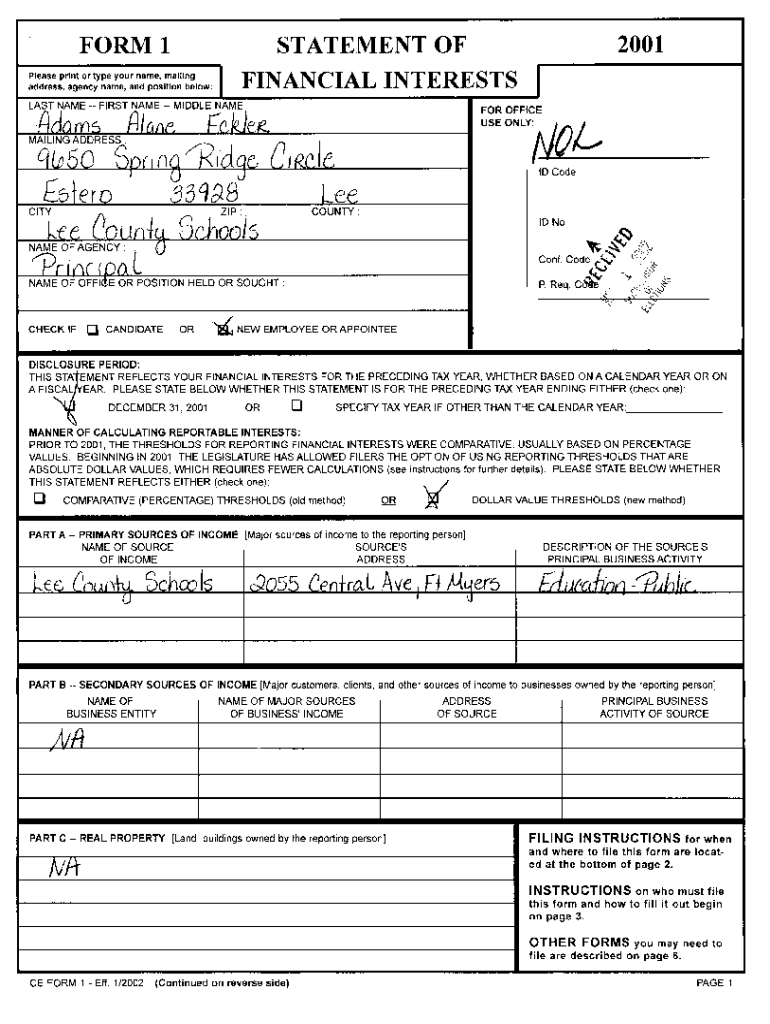 FORM 1
STATEMENT OF
FINANCIAL INTERESTS
2001
Please print or type your name, mailing
address, agency name, and position below:
LAST NAME -- FIRST NAME -- MIDDLE NAME
Adams Alane Eckler
MAILING ADDRESS
9650 Spring Ridge Circle
Estero 33928 Lee
CITY ZIP : COUNTY :
Lee County Schools
NAME OF AGENCY :
Principal
NAME OF OFFICE OR POSITION HELD OR SOUGHT :
CHECK IF CANDIDATE OR NEW EMPLOYEE OR APPOINTEE
FOR OFFICE
USE ONLY:
ID Code
ID No
Conf. Code
P. Req. Code
RECEIVED
ELECTIONS
DISCLOSURE PERIOD:
THIS STATEMENT REFLECTS YOUR FINANCIAL INTERESTS FOR THE PRECEDING TAX YEAR, WHETHER BASED ON A CALENDAR YEAR OR ON
A FISCAL YEAR. PLEASE STATE BELOW WHETHER THIS STATEMENT IS FOR THE PRECEDING TAX YEAR ENDING EITHER (check one):
DECEMBER 31, 2001 OR SPECIFY TAX YEAR IF OTHER THAN THE CALENDAR YEAR:
MANNER OF CALCULATING REPORTABLE INTERESTS:
PRIOR TO 2001, THE THRESHOLDS FOR REPORTING FINANCIAL INTERESTS WERE COMPARATIVE, USUALLY BASED ON PERCENTAGE
VALUES. BEGINNING IN 2001 THE LEGISLATURE HAS ALLOWED FILERS THE OPTION OF USING REPORTING THRESHOLDS THAT ARE
ABSOLUTE DOLLAR VALUES, WHICH REQUIRES FEWER CALCULATIONS (see instructions for further details). PLEASE STATE BELOW WHETHER
THIS STATEMENT REFLECTS EITHER (check one):
COMPARATIVE (PERCENTAGE) THRESHOLDS (old method) OR DOLLAR VALUE THRESHOLDS (new method)
PART A -- PRIMARY SOURCES OF INCOME [Major sources of income to the reporting person]
NAME OF SOURCE SOURCE'S DESCRIPTION OF THE SOURCE'S
OF INCOME ADDRESS PRINCIPAL BUSINESS ACTIVITY
Lee County Schools 2055 Central Ave, Ft Myers Education - Public
PART B -- SECONDARY SOURCES OF INCOME [Major customers, clients, and other sources of income to businesses owned by the reporting person]
NAME OF NAME OF MAJOR SOURCES ADDRESS PRINCIPAL BUSINESS
BUSINESS ENTITY OF BUSINESS' INCOME OF SOURCE ACTIVITY OF SOURCE
NA
PART C -- REAL PROPERTY [Land, buildings owned by the reporting person]
NA
FILING INSTRUCTIONS for when
and where to file this form are locat-
ed at the bottom of page 2.
INSTRUCTIONS on who must file
this form and how to fill it out begin
on page 3.
OTHER FORMS you may need to
file are described on page 6.
CE FORM 1 - Eff. 1/2002 (Continued on reverse side) PAGE 1